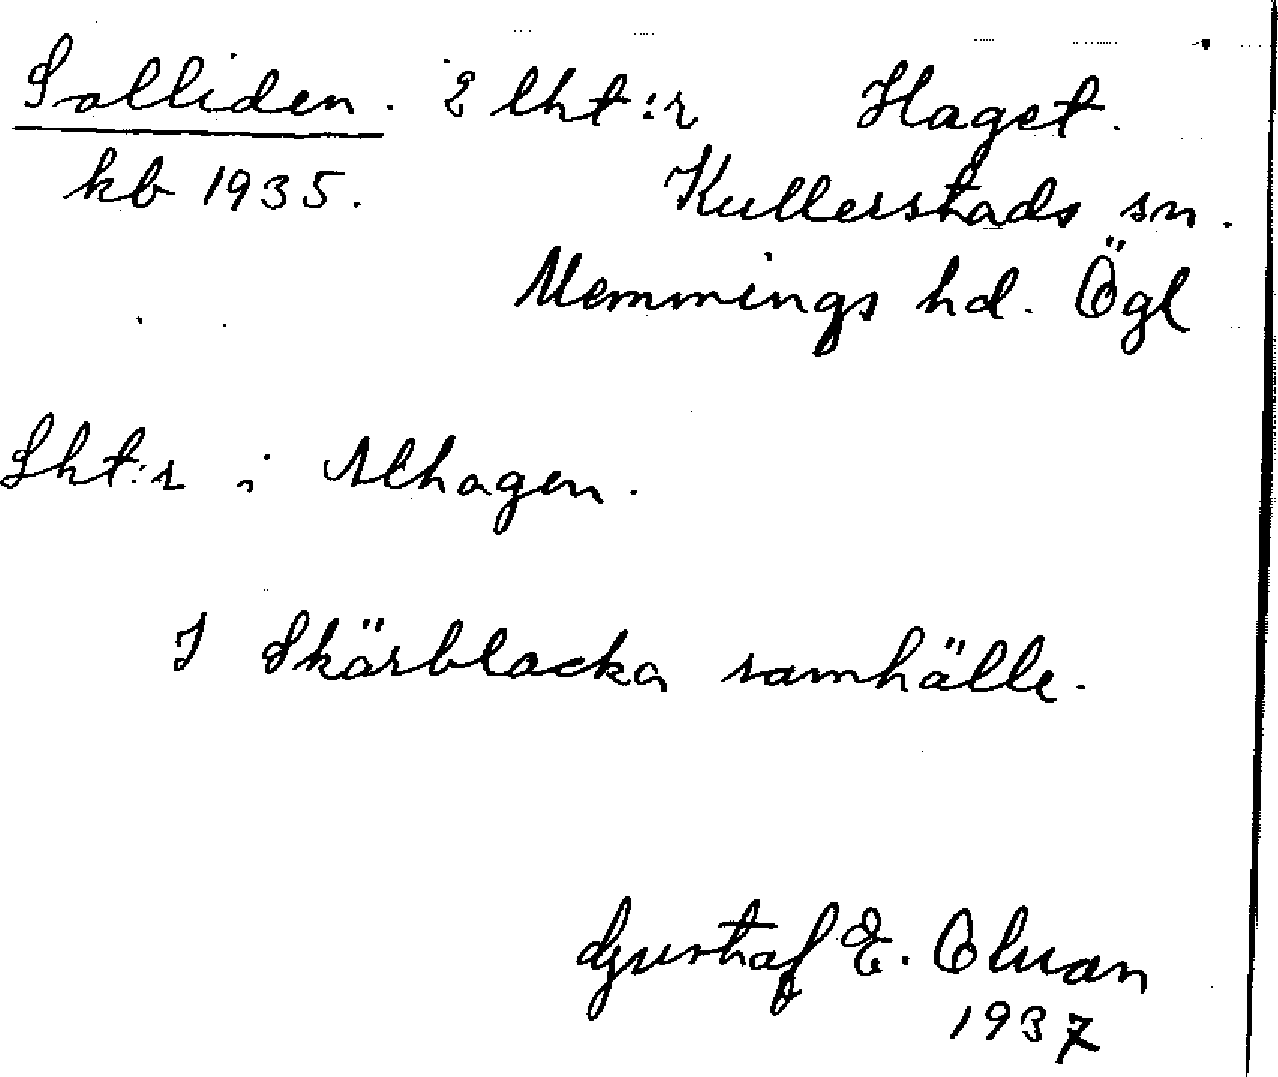 Solliden. 2 lht:r Haget.
kb 1935. Kullerstads sn.
Memmings hd. Ögl
Lht:r i Alhagen.
I Skärblacka samhälle.
Gustaf E.
1937